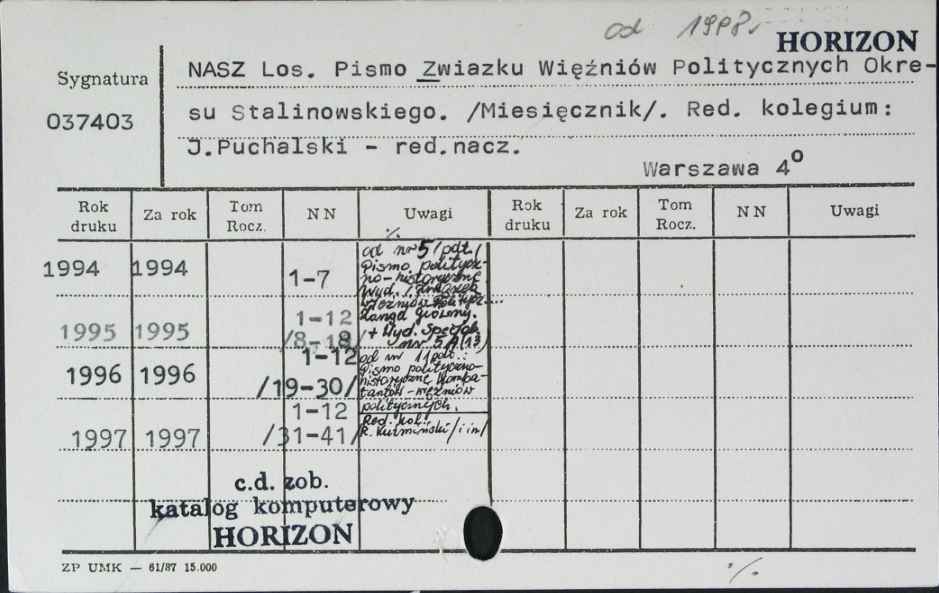 od 1998r
HORIZON
Sygnatura
037403
NASZ Los. Pismo Zwiazku Więźniów Politycznych Okre-
su Stalinowskiego. /Miesięcznik/. Red. kolegium:
J.Puchalski - red.nacz.
Warszawa 4°
Rok druku Za rok Tom Rocz. NN Uwagi Rok druku Za rok Tom Rocz. NN Uwagi
1994 1994 1-7
od nr 5 /pdt./
Pismo politycz-
no-historyczne
Wyd.: Związek
Więźniów Politycz...
Zarząd Główny.
1995 1995 1-12
/8-18/
/+ Wyd. Specjal.
nr 5A(13)
1996 1996 1-12
/19-30/
od nr 11 pdt.:
Pismo polityczno-
historyczne komba-
tantów-więźniów
politycznych.
1997 1997 1-12
/31-41/
Red. kol.:
R. Kuźmiński /i in/
c.d. zob.
katalog komputerowy
HORIZON
ZP UMK — 61/87 15.000